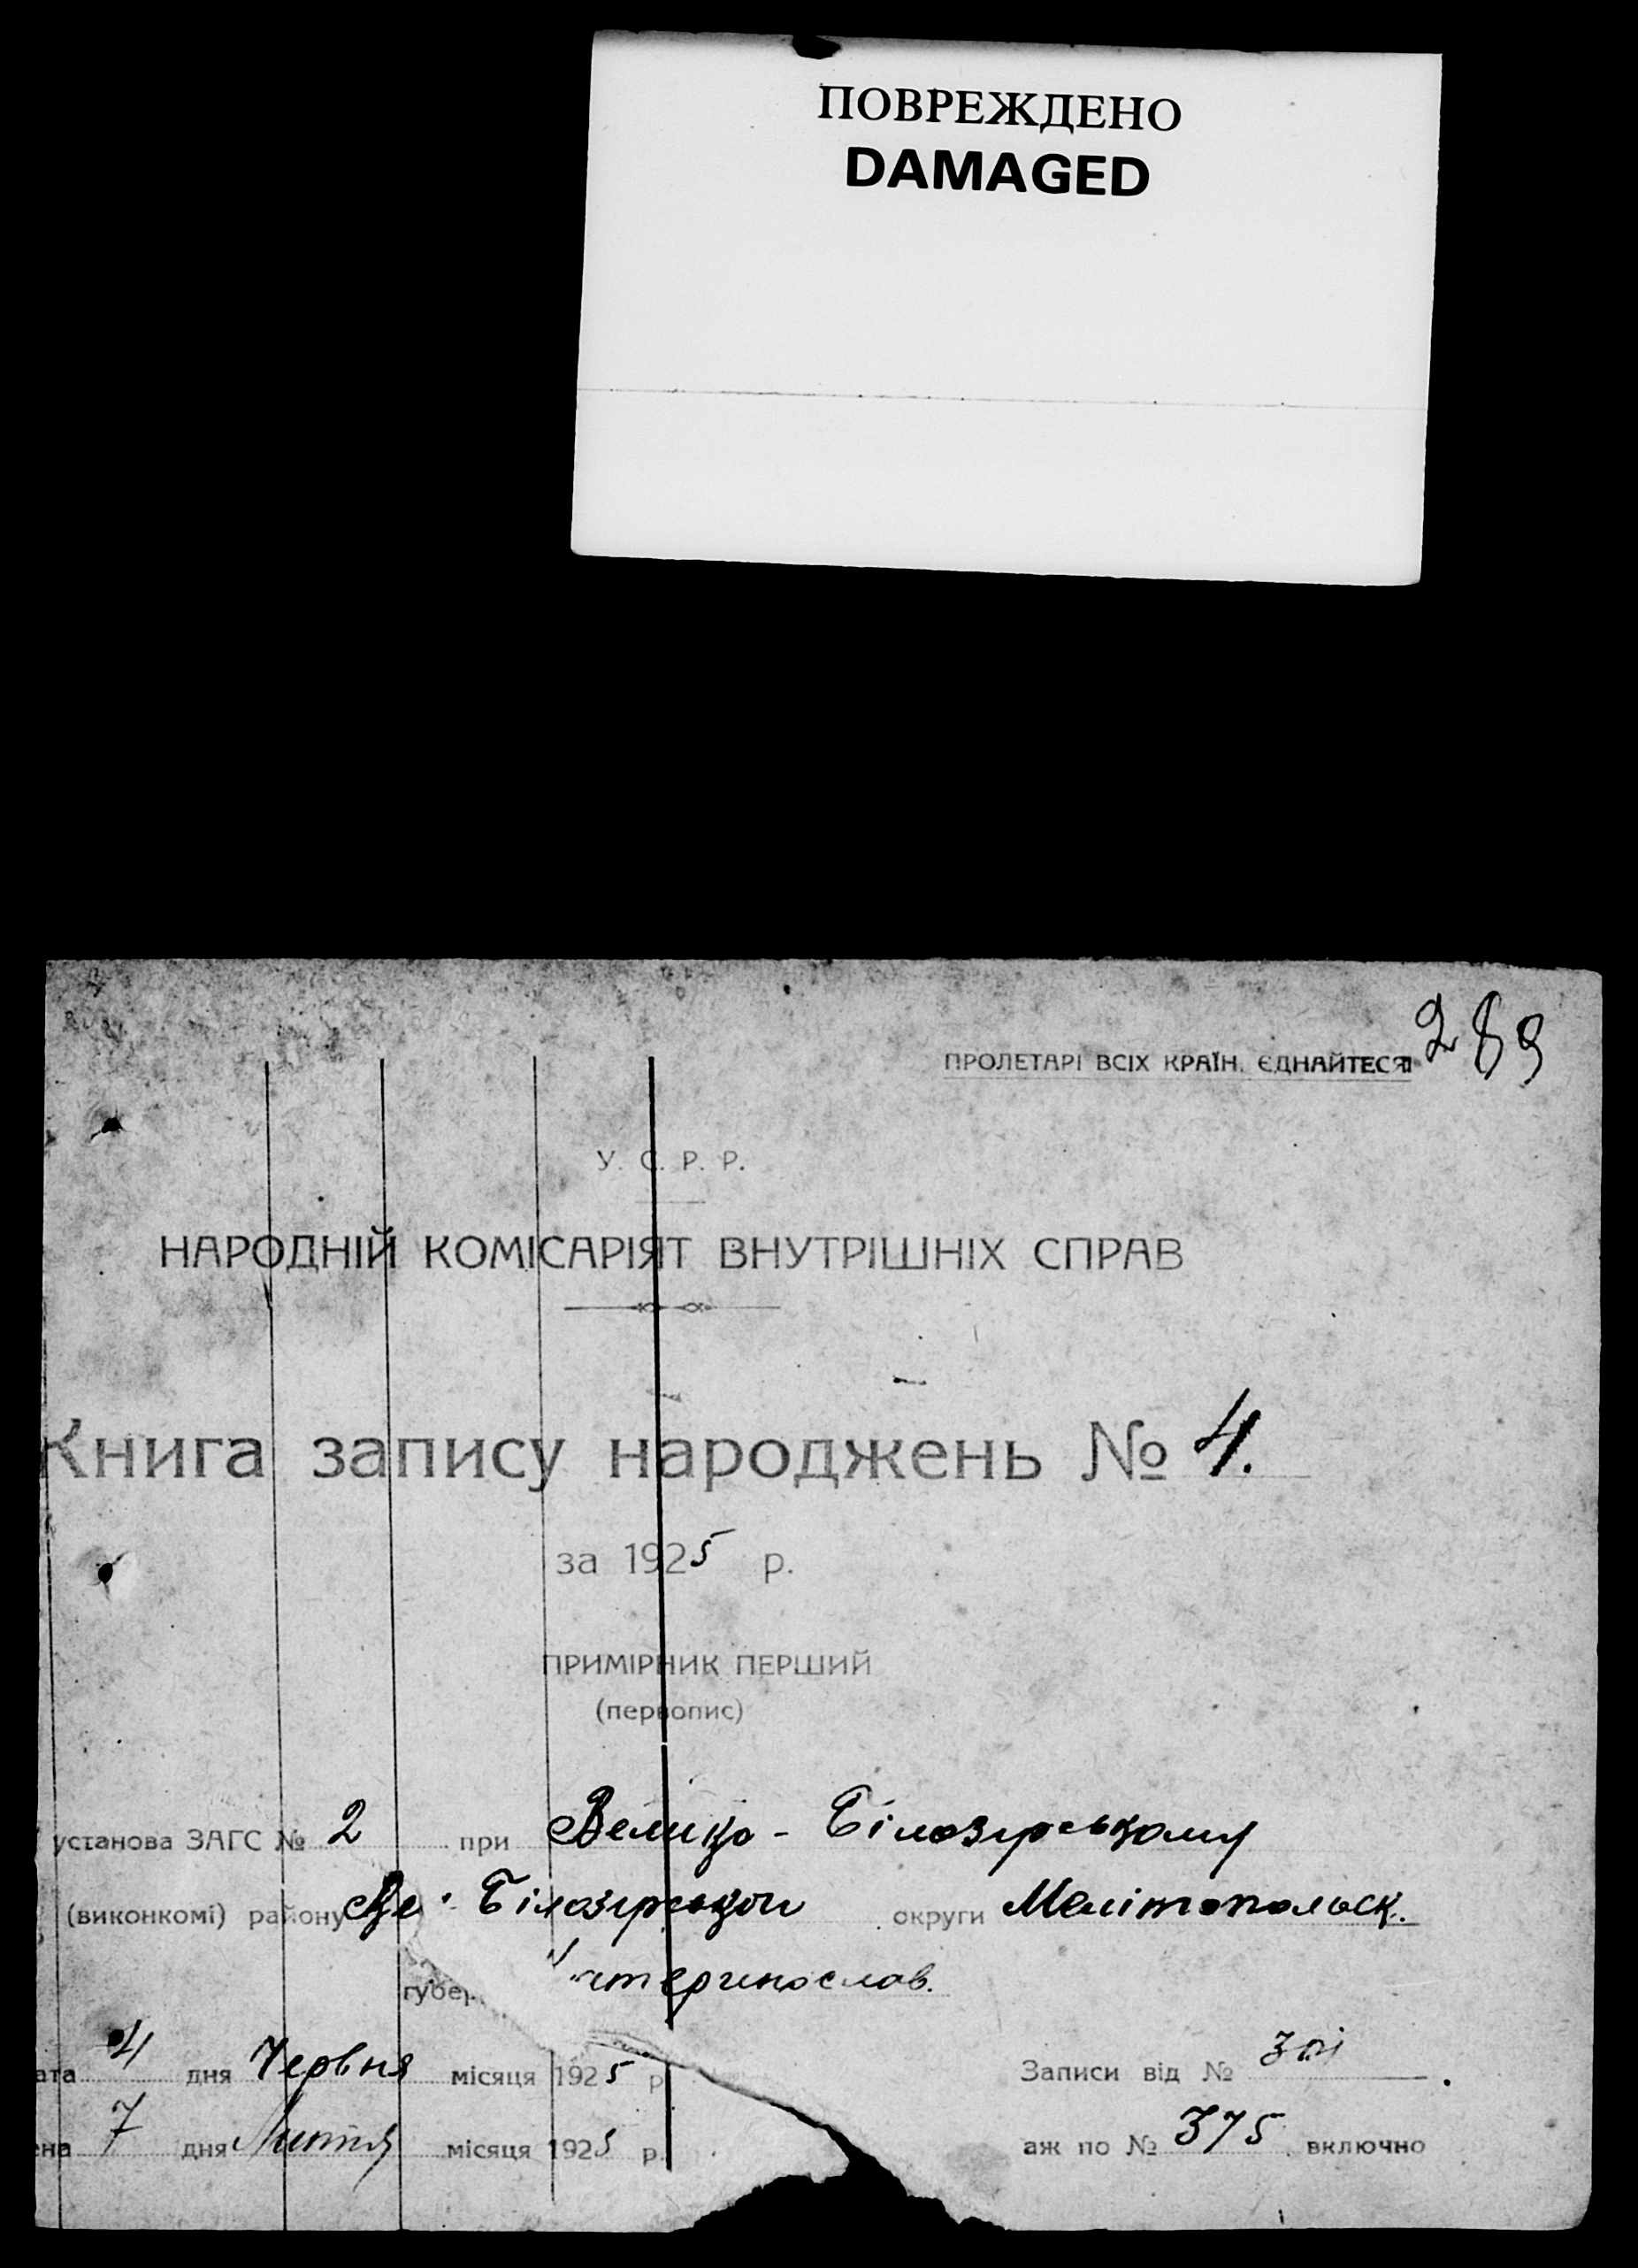 ПОВРЕЖДЕНО
DAMAGED
289
ПРОЛЕТАРІ ВСІХ КРАЇН, ЄДНАЙТЕСЯ
У. С. Р. Р.
НАРОДНІЙ КОМІСАРІЯТ ВНУТРІШНІХ СПРАВ
Книга запису народжень № 4.
за 1925 р.
ПРИМІРНИК ПЕРШИЙ
(первопис)
установа ЗАГС № 2 при Велико-Білозирському
(виконкомі) району Ве-Білозирської округи Мелітопольск.
губер. атеринослав.
ата 4 дня Червня місяця 1925 р
Записи від № 301
ена 7 дня Липня місяця 1925 р.
аж по № 375 включно